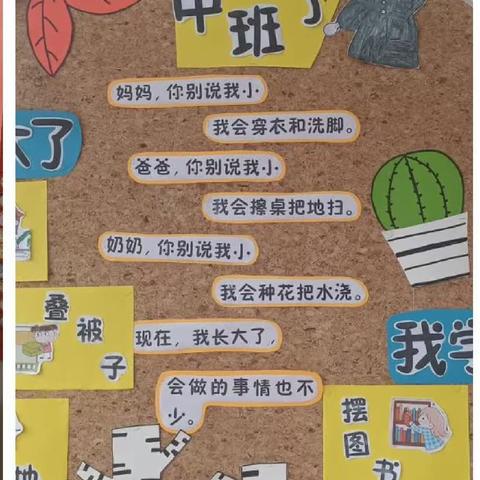 中班了
妈妈，你别说我小
我会穿衣和洗脚。
大了
爸爸，你别说我小
我会擦桌把地扫。
奶奶，你别说我小
我会种花把水浇。
叠被子
现在，我长大了，
我学
会做的事情也不
少。
摆图书